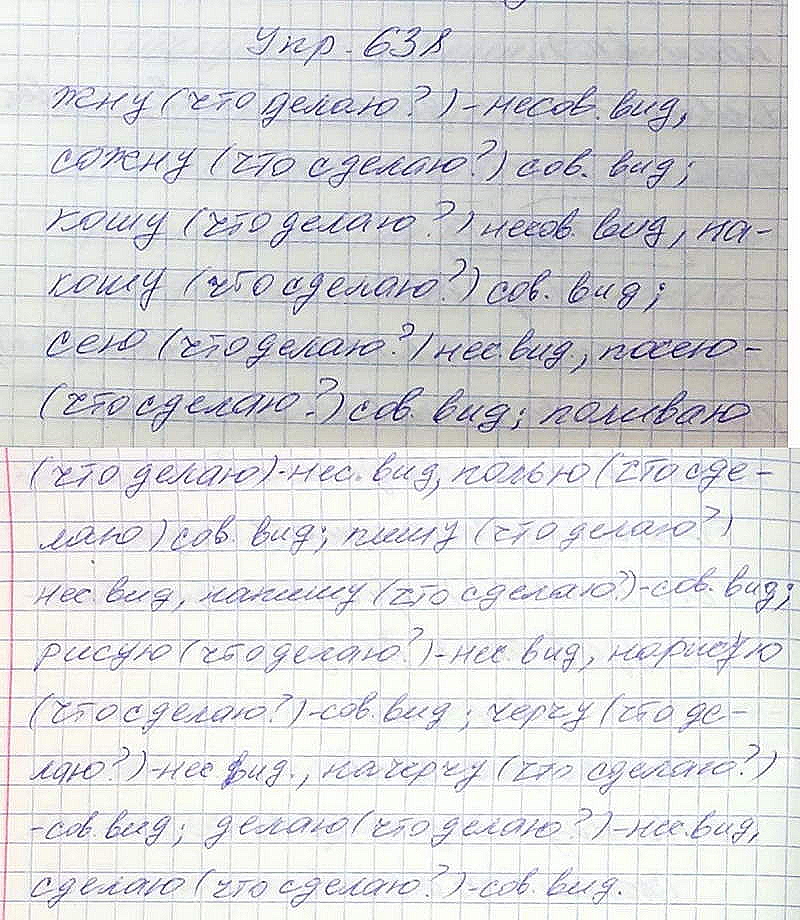 Упр. 638
жну (что делаю?) - несов. вид,
сожну (что сделаю?) сов. вид;
кошу (что делаю?) несов. вид, на-
кошу (что сделаю?) сов. вид;
сею (что делаю?) нес. вид, посею -
(что сделаю?) сов. вид; поливаю
(что делаю) - нес. вид, полью (что сде-
лаю) сов. вид; пишу (что делаю?)
нес. вид, напишу (что сделаю?) - сов. вид;
рисую (что делаю?) - нес. вид, нарисую
(что сделаю?) - сов. вид; черчу (что де-
лаю?) - нес. вид., начерчу (что сделаю?)
- сов. вид; делаю (что делаю?) - нес. вид,
сделаю (что сделаю?) - сов. вид.